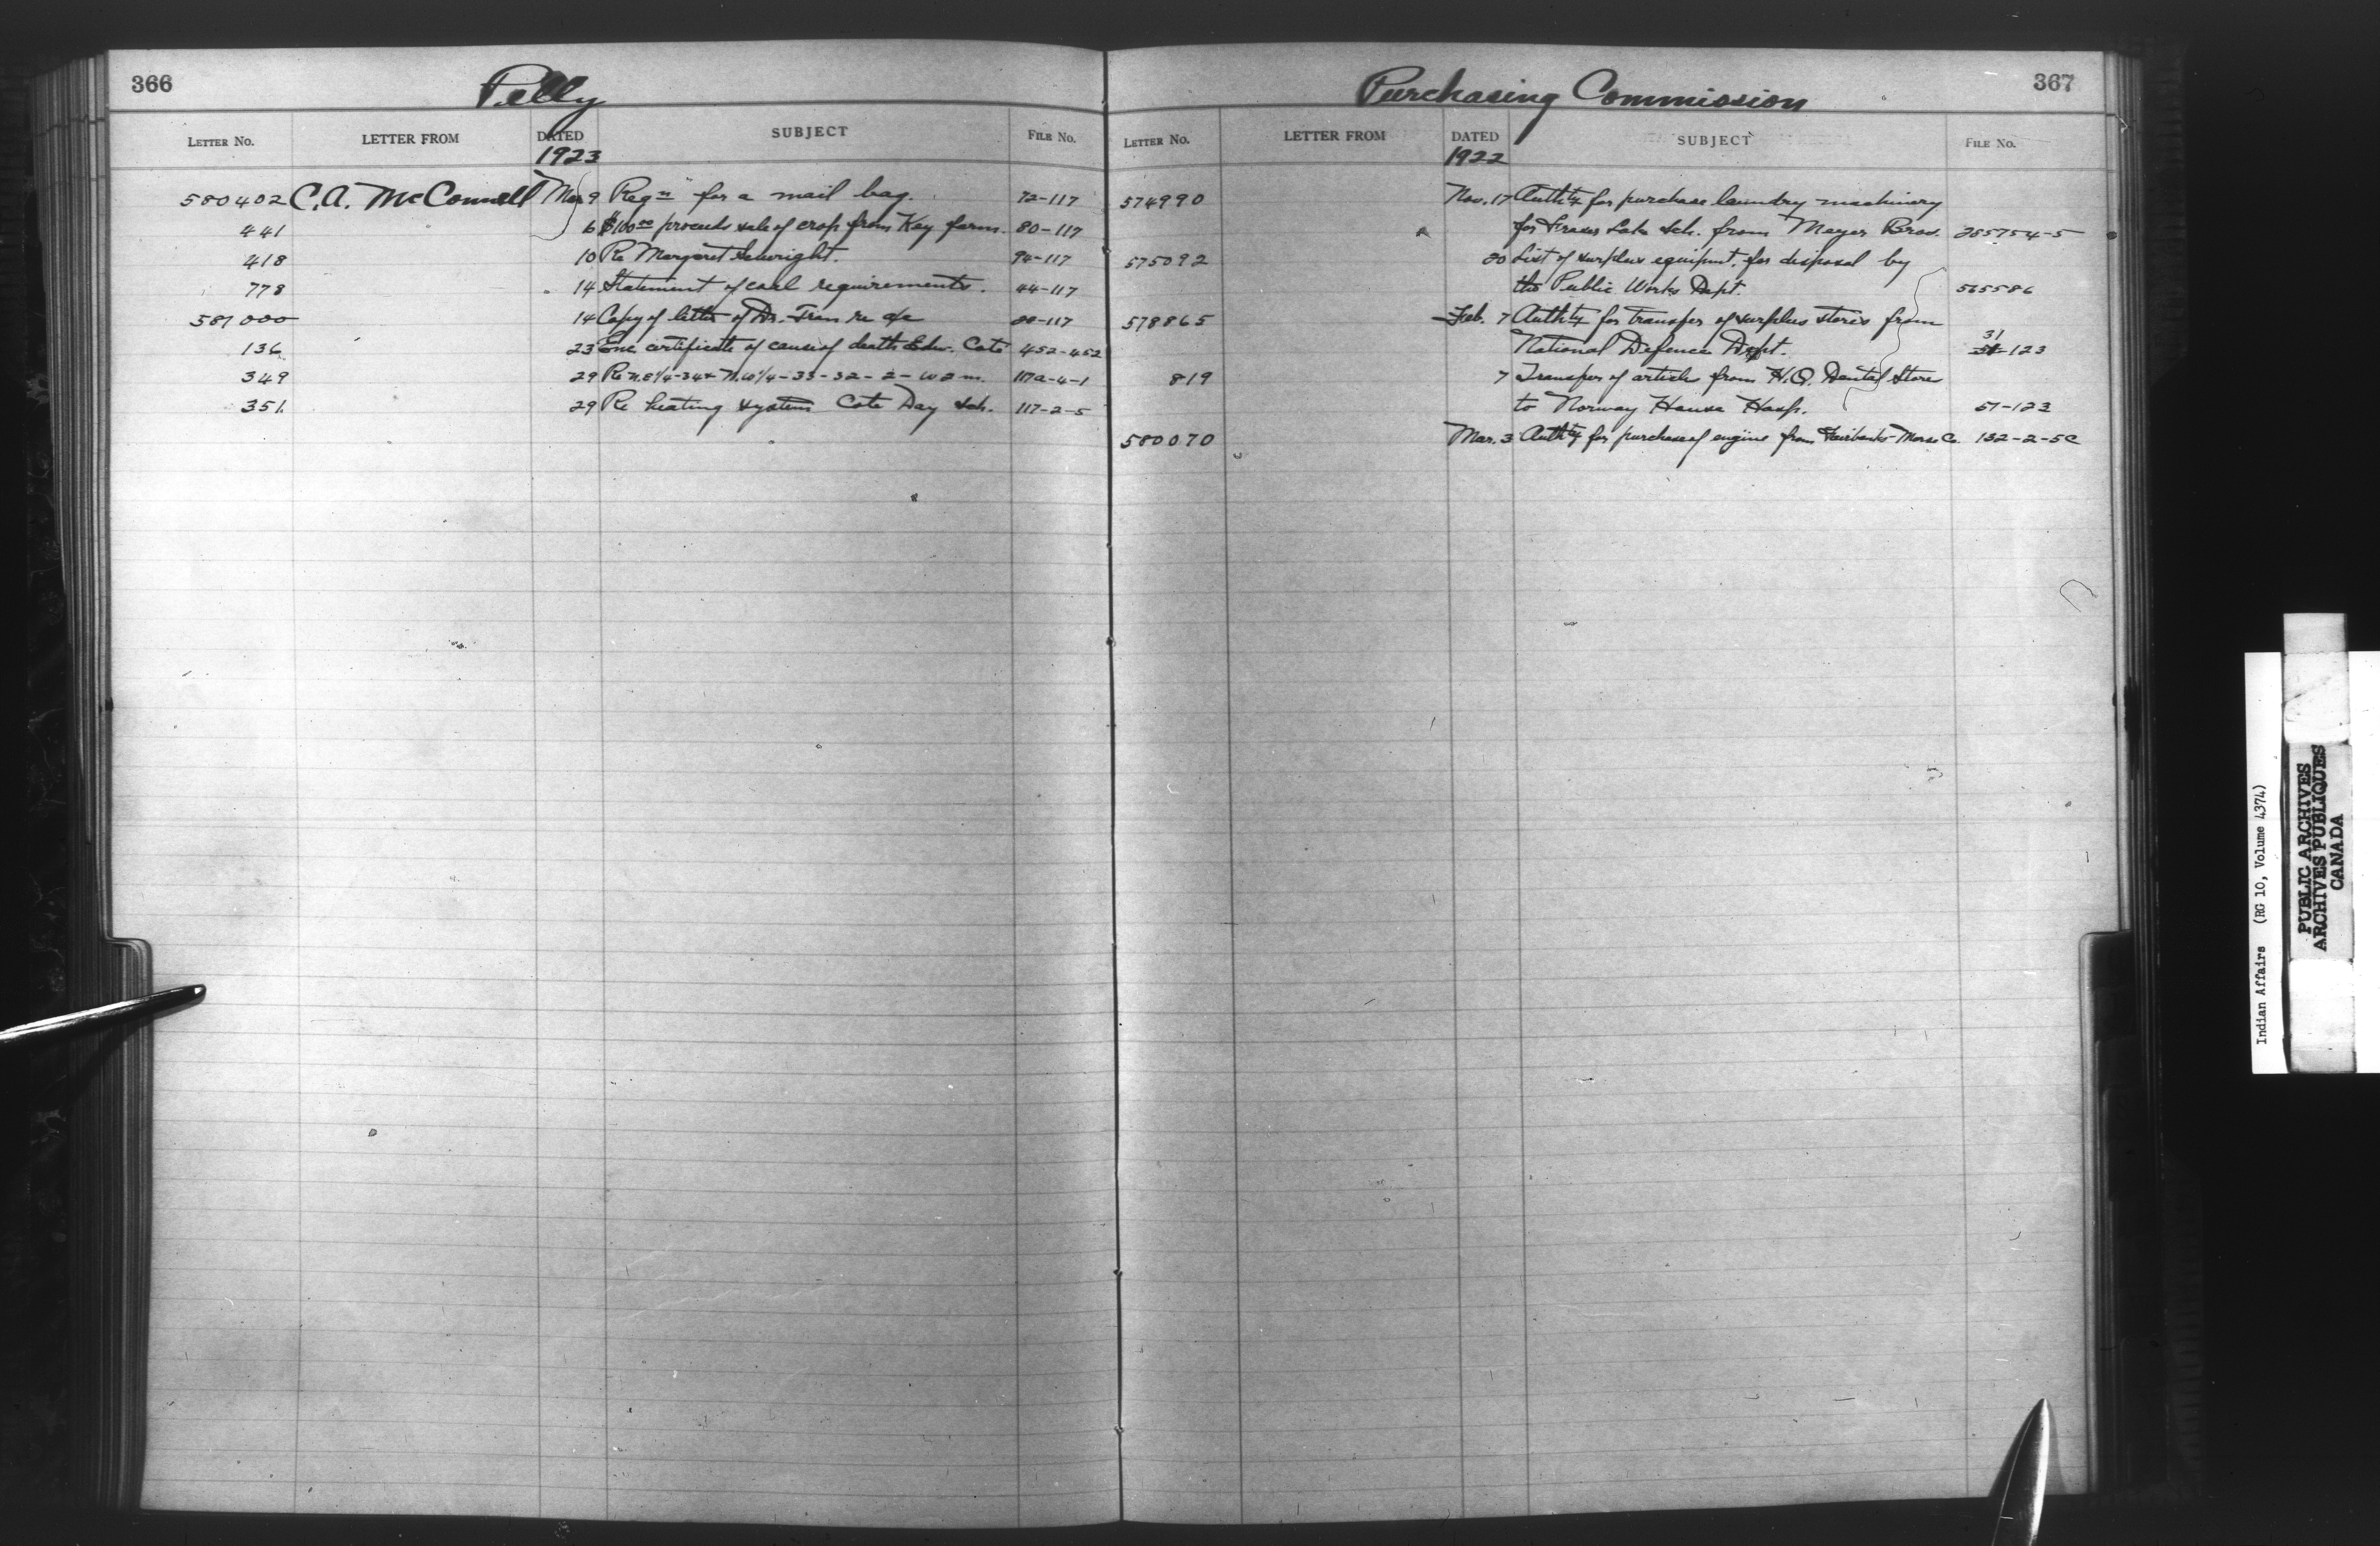 366
Pelly
LETTER NO. LETTER FROM DATED SUBJECT FILE NO.
1923
580402 C.A. McConnell Mar 9 Reqn for a mail bag. 72-117
441 6 $100.00 proceeds sale of crop from Key farm. 80-117
418 10 Re Margaret 94-117
778 14 Statement of coal requirements. 44-117
581000 14 Copy of letter of Dr. re a/c -117
136 23 Enc certificate of cause of death Edw. Cote 452-452
349 29 Re N.E1/4-34 & N.W1/4-33-32-2-W2m. 117a-4-1
351 29 Re heating system Cote Day Sch. 117-2-5
Purchasing Commission
367
LETTER NO. LETTER FROM DATED SUBJECT FILE NO.
1922
574990 Nov. 17 Authty for purchase laundry machinery
for Fraser Lake Sch. from Meyer Bros. 285754-5
575092 20 List of surplus equipmt. for disposal by
the Public Works Dept. 565586
578865 Feb. 7 Authty for transfer of surplus stores from
31
National Defence Dept. 51-123
819 7 Transfer of article from H.Q. Dental Store
to Norway House Hosp. 51-123
580070 Mar. 3 Authty for purchase of engine from Fairbanks-Morse Co. 132-2-5C
Indian Affairs (RG 10, Volume 4374)
PUBLIC ARCHIVES
ARCHIVES PUBLIQUES
CANADA